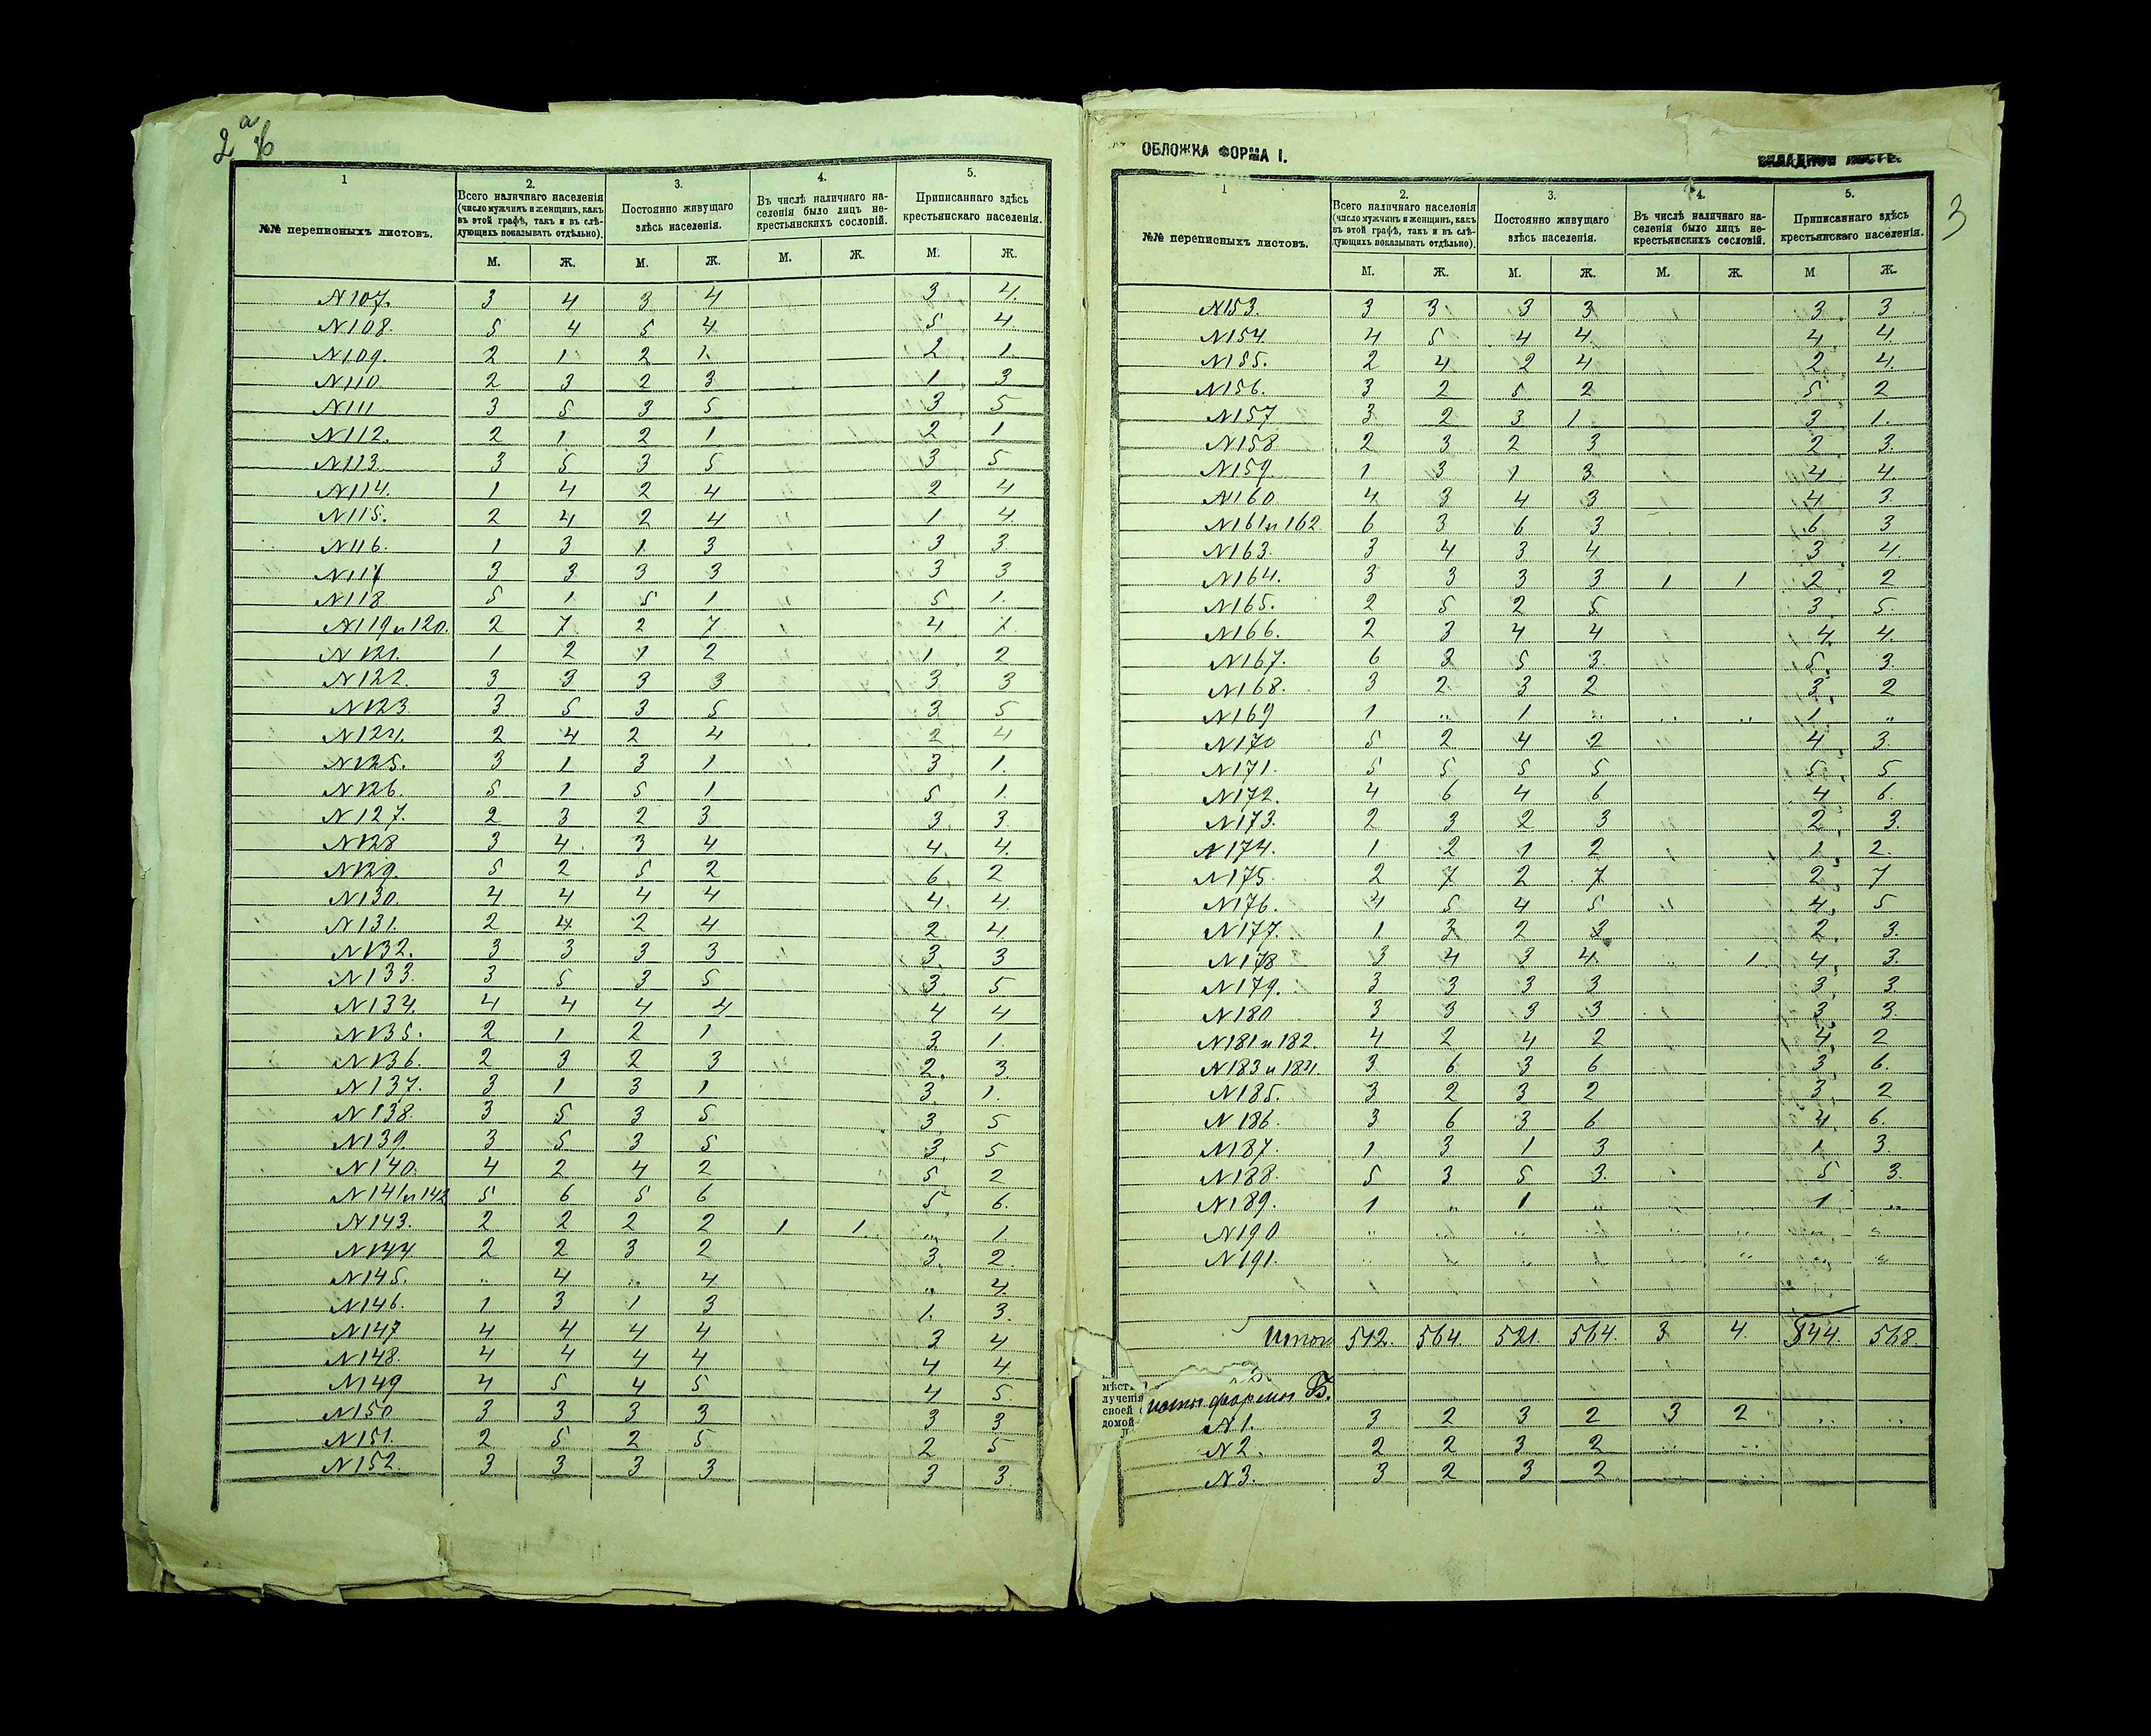 2а
ОБЛОЖКА ФОРМА I.
3
1 2. 3. 4. 5.
№№ переписныхъ листовъ. Всего наличнаго населенія (число мужчинъ и женщинъ, какъ въ этой графѣ, такъ и въ слѣдующихъ показывать отдѣльно). Постоянно живущаго здѣсь населенія. Въ числѣ наличнаго населенія было лицъ некрестьянскихъ сословій. Приписаннаго здѣсь крестьянскаго населенія.
М. Ж. М. Ж. М. Ж. М. Ж.
N107. 3 4 3 4 3 4.
N108. 5 4 5 4 5 4
N109. 2 1 2 1. 2 1.
N110. 2 3 2 3 1 3
N111 3 5 3 5 3 5
N112. 2 1 2 1 2 1
N113. 3 5 3 5 3 5
N114. 1 4 2 4 2 4
N115. 2 4 2 4 1 4.
N116. 1 3 1 3 3 3
N117 3 3 3 3 3 3
N118 5 1 5 1 5 1.
N119 и 120. 2 7 2 7 4
N121. 1 2 1 2 1 2
N122. 3 3 3 3 3 3
N123. 3 5 3 5 3 5
N124. 2 4 2 4 2 4
N125. 3 1 3 1 3 1.
N126. 5 1 5 1 5 1.
N127. 2 3 2 3 3 3
N128 3 4 3 4 4 4.
N129. 5 2 5 2 6 2
N130. 4 4 4 4 4. 4.
N131. 2 4 2 4 2 4
N132. 3 3 3 3 3 3
N133. 3 5 3 5 3 5
N134. 4 4 4 4 4 4
N135. 2 1 2 1 3 1.
N136. 2 3 2 3 2. 3.
N137. 3 1 3 1 3 1.
N138. 3 5 3 5 3 5
N139. 3 5 3 5 3. 5
N140. 4 2 4 2 5 2
N141 и 142 5 6 5 6 5 6.
N143. 2 2 2 2 1 1. " 1
N144 2 2 3 2 3. 2.
N145. " 4 " 4 " 4.
N146. 1 3 1 3 1. 3.
N147 4 4 4 4 3 4
N148. 4 4 4 4 4 4
N149 4 5 4 5 4 5
N150 3 3 3 3 3 3
N151. 2 5 2 5 2 5
N152. 3 3 3 3 3 3.
1 2. 3. 4. 5.
№№ переписныхъ листовъ. Всего наличнаго населенія (число мужчинъ и женщинъ, какъ въ этой графѣ, такъ и въ слѣдующихъ показывать отдѣльно). Постоянно живущаго здѣсь населенія. Въ числѣ наличнаго населенія было лицъ некрестьянскихъ сословій. Приписаннаго здѣсь крестьянскаго населенія.
М. Ж. М. Ж. М. Ж. М Ж.
N153. 3 3 3 3 3 3
N154. 4 5 4 4 4 4.
N155. 2 4 2 4 2 4.
N156. 3 2 5 2 5 2
N157 3 2 3 1 3 1.
N158 2 3 2 3 2 3.
N159. 1 3 1 3 4 4.
N160. 4 3 4 3 4 3
N161 и 162. 6 3 6 3 6 3
N163. 3 4 3 4 3 4
N164. 3 3 3 3 1 1 2 2
N165. 2 5 2 5 3 5
N166. 2 3 4 4 4. 4.
N167. 6 3 5 3 5. 3.
N168. 3 2 3 2 3. 2
N169 1 " 1 " " " 1 "
N170 5 2 4 2 4 3.
N171. 5 5 5 5 5 5
N172. 4 6 4 6 4 6.
N173. 2 3 2 3 2 3.
N174. 1 2 1 2 1 2.
N175. 2 7 2 7 2 7
N176. 4 5 4 5 4. 5
N177. 1 3 2 3 2. 3.
N178 3 4 3 4. 1 4 3.
N179. 3 3 3 3 3. 3.
N180 3 3 3 3 3 3.
N181 и 182. 4 2 4 2 4 2
N183 и 184. 3 6 3 6 3 6.
N185. 3 2 3 2 3 2
N186. 3 6 3 6 4 6.
N187. 1 3 1 3 1 3.
N188. 5 3 5 3. 5 3.
N189. 1 " 1 " 1 "
N190 " " " " " " "
N191. " " " " " " "
Итого 512. 564. 521. 564. 3 4. 544. 568.
формы Б.
N1. 3 2 3 2 3 2 " "
N2. 2 2 3 2 " "
N3. 3 2 3 2 " "